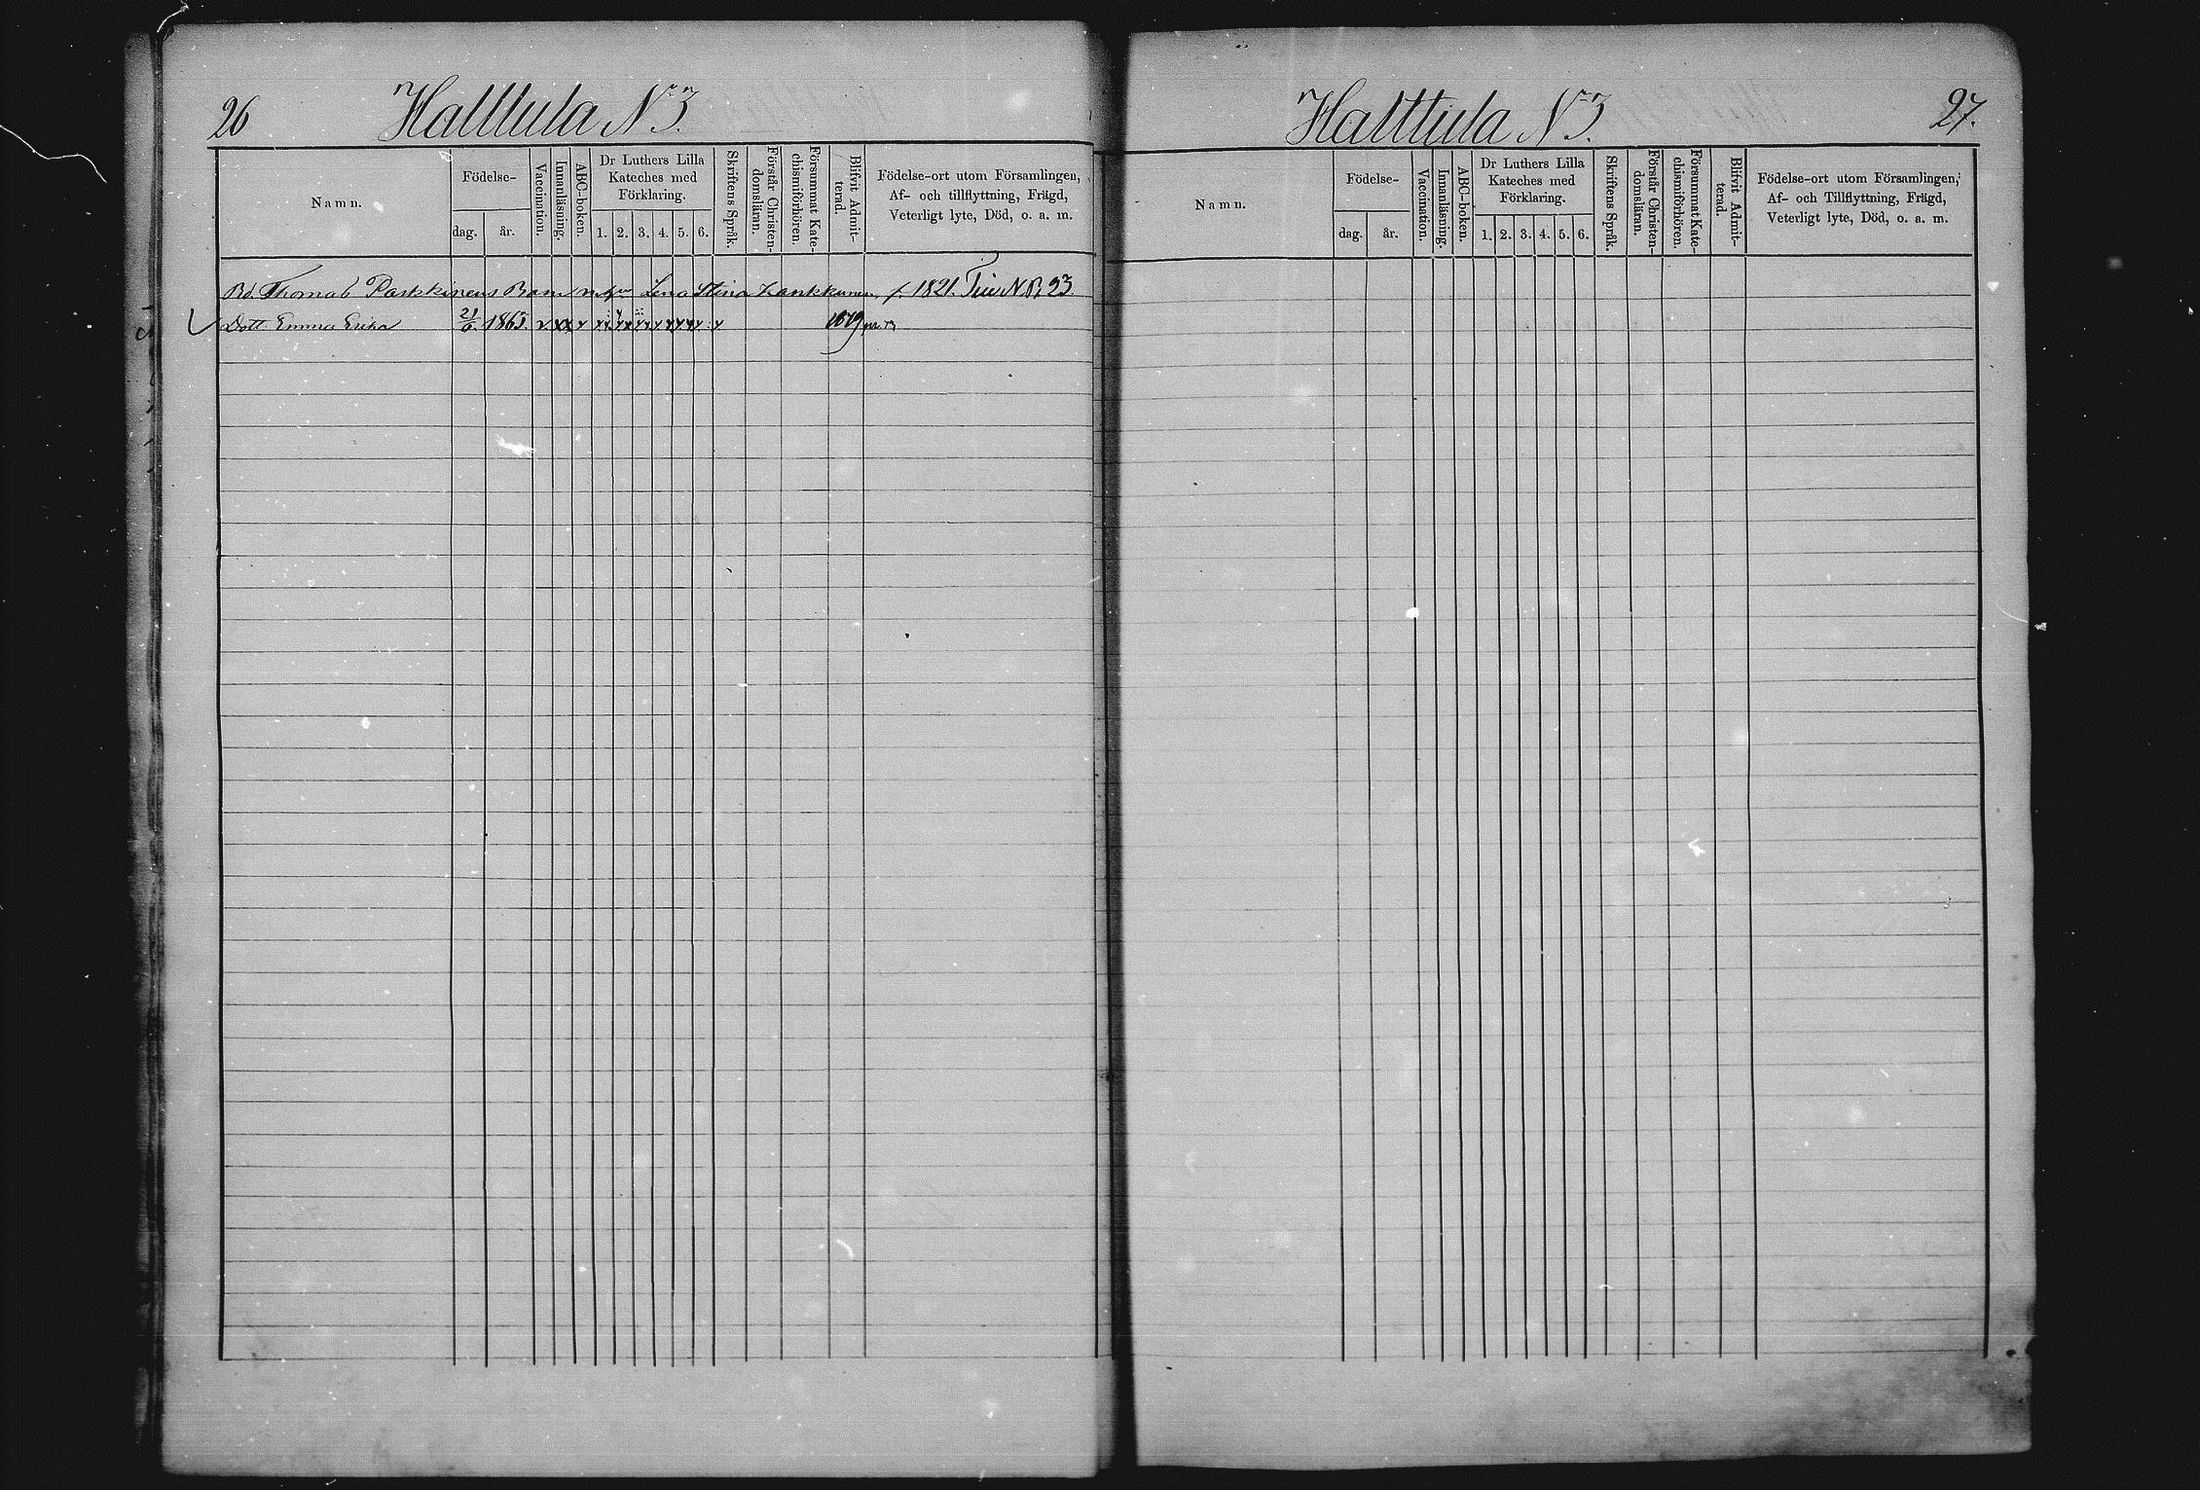 26
Halttula N 3.
Namn.
Födelse-
dag.
år.
Vaccination.
Innanläsning.
ABC-boken.
Dr Luthers Lilla
Kateches med
Förklaring.
1. 2. 3. 4. 5. 6.
Skriftens Språk.
Förstår Christen-
domsläran.
Försummat Kate-
chismiförhören.
Blifvit Admit-
terad.
Födelse-ort utom Församlingen,
Af- och tillflyttning, Frägd,
Veterligt lyte, Död, o. a. m.
Thomas Parkkinens Barn Lena Stina f. 1821. 23
Dott Emma Erika 21/6 1865 1879
Halttula N 3.
27.
Namn.
Födelse-
dag.
år.
Vaccination.
Innanläsning.
ABC-boken.
Dr Luthers Lilla
Kateches med
Förklaring.
1. 2. 3. 4. 5. 6.
Skriftens Språk.
Förstår Christen-
domsläran.
Försummat Kate-
chismiförhören.
Blifvit Admit-
terad.
Födelse-ort utom Församlingen,
Af- och Tillflyttning, Frägd,
Veterligt lyte, Död, o. a. m.